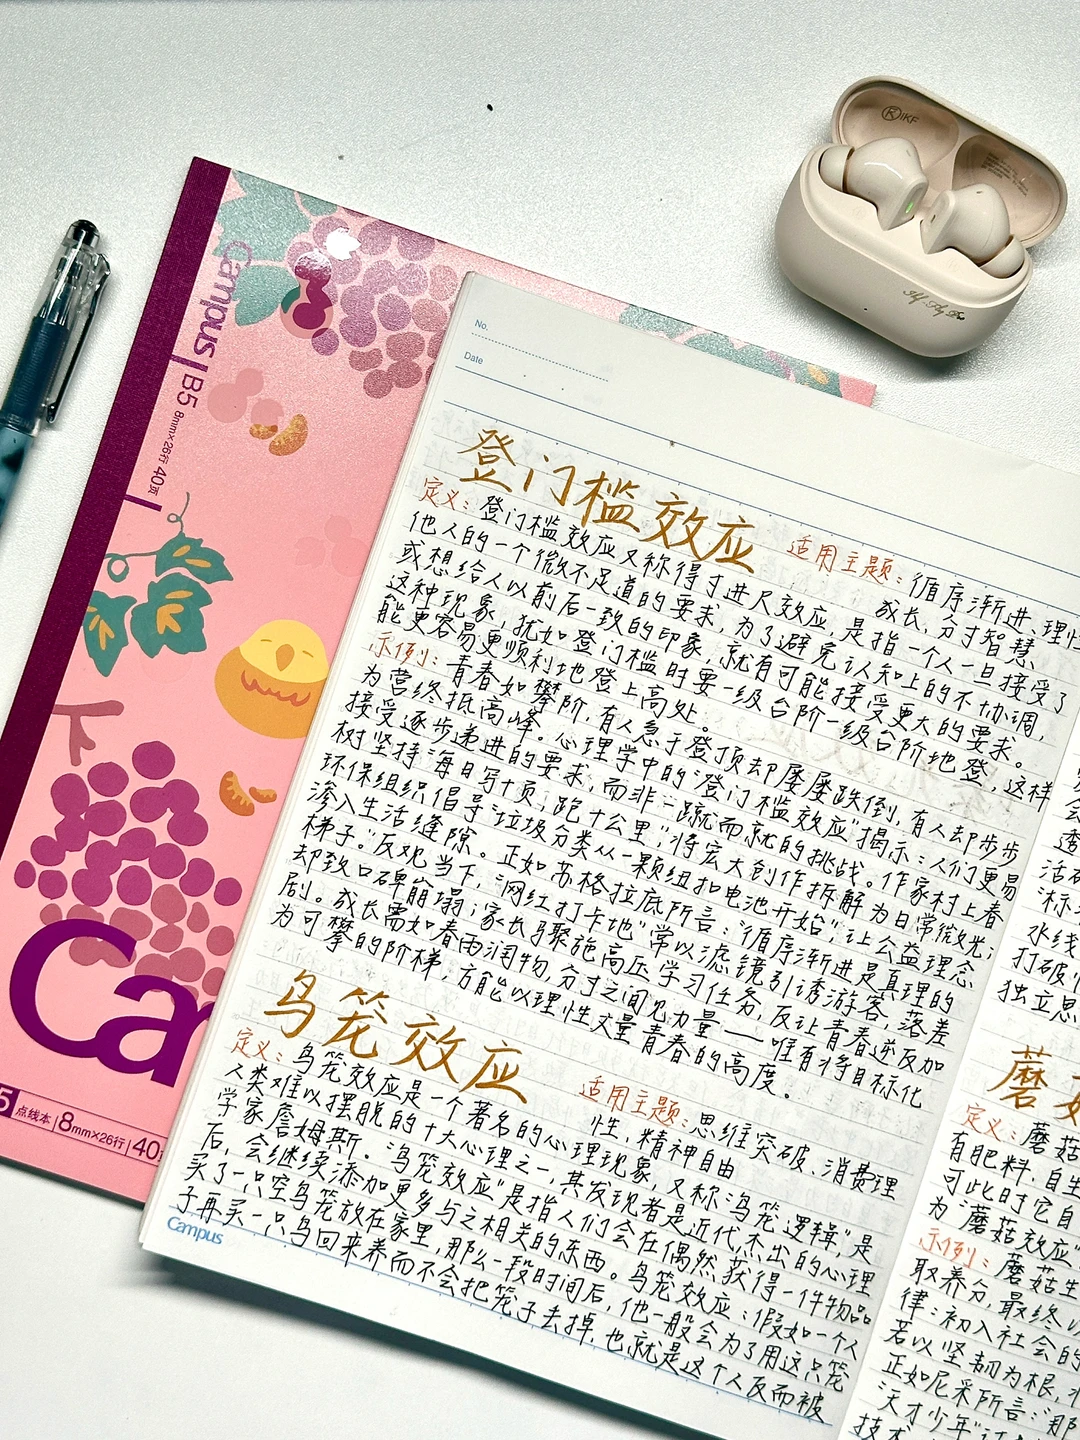 IKF
Campus
B5
8mm×26行 40页
No.
Date
登门槛效应
适用主题：循序渐进、理性
成长、分寸智慧
定义：登门槛效应又称得寸进尺效应，是指一个人一旦接受了
他人的一个微不足道的要求，为了避免认知上的不协调，
或想给人以前后一致的印象，就有可能接受更大的要求。
这种现象，犹如登门槛时要一级台阶一级台阶地登，这样
能更容易更顺利地登上高处。
示例：青春如攀阶，有人急于登顶却屡屡跌倒，有人却步步
为营终抵高峰。心理学中的"登门槛效应"揭示：人们更易
接受逐步递进的要求，而非一蹴而就的挑战。作家村上春
树坚持"每日写十页，跑十公里"，将宏大创作拆解为日常微光；
环保组织倡导"垃圾分类从一颗纽扣电池开始"，让公益理念
渗入生活缝隙。正如苏格拉底所言："循序渐进是真理的
梯子。"反观当下，"网红打卡地"常以滤镜引诱游客，落差
却致口碑崩塌；家长骤施高压学习任务，反让青春逆反加
剧。成长需如春雨润物，分寸之间见力量——唯有将目标化
为可攀的阶梯，方能以理性丈量青春的高度。
鸟笼效应
适用主题：思维突破、消费理
性、精神自由
定义：鸟笼效应是一个著名的心理现象，又称"鸟笼逻辑"，是
人类难以摆脱的十大心理之一，其发现者是近代杰出的心理
学家詹姆斯。"鸟笼效应"是指人们会在偶然获得一件物品
后，会继续添加更多与之相关的东西。鸟笼效应：假如一个人
买了一只空鸟笼放在家里，那么一段时间后，他一般会为了用这只笼
子再买一只鸟回来养而不会把笼子去掉，也就是这个人反而被
Campus
会
透
活
标
水线
打破
独立思
蘑
定义：蘑菇
有肥料，自生
可此时它自
为"蘑菇效应"
示例：蘑菇生
取养分，最终以
律：初入社会的
若以坚韧为根，
正如尼采所言："那
"天才少年"
技术
Ca
5 点线本 8mm×26行 40